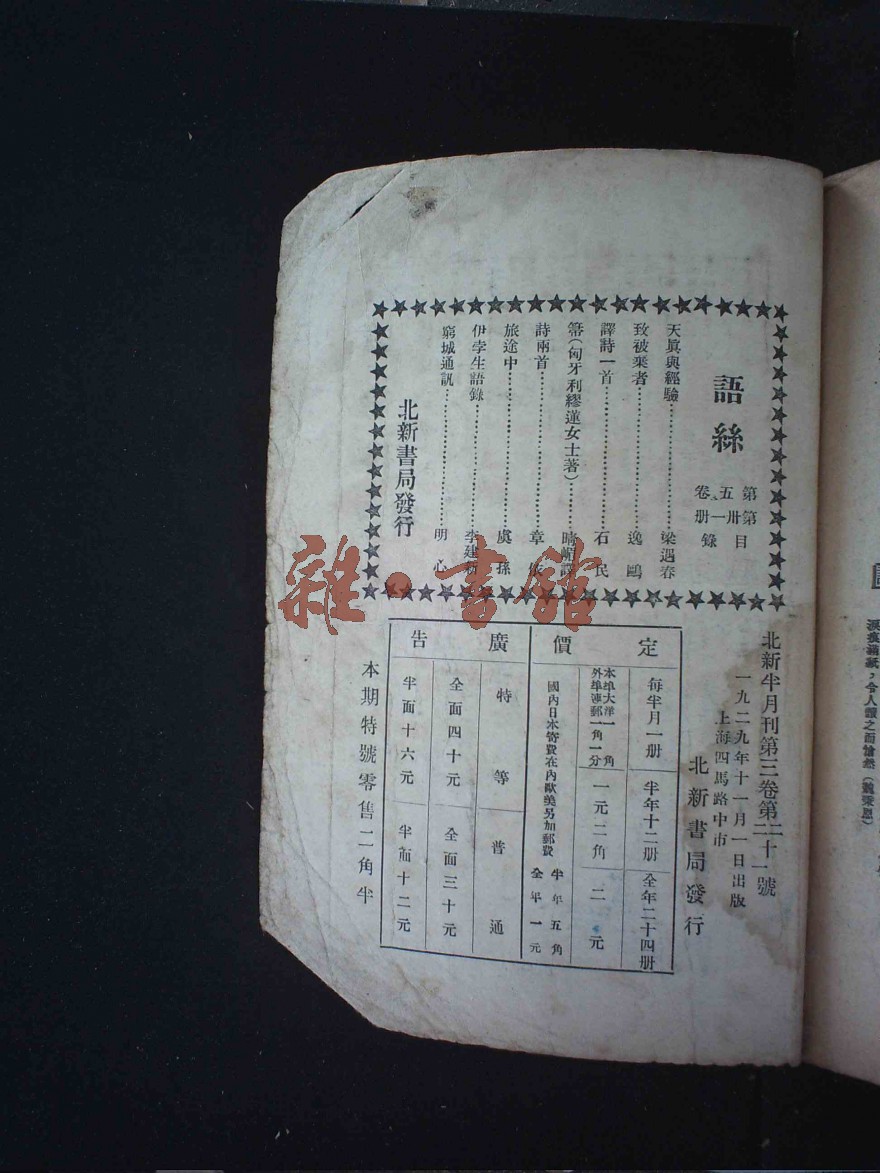 語絲
第五卷
第卅一册
目錄
天眞與經驗……梁遇春
致被棄者……逸鷗
譯詩一首……石民
箒(匈牙利繆蓮女士著)……晴嵋譯
詩兩首……章依
旅途中……虞孫
伊孛生語錄……李建新
窮城通訊……明心
北新書局發行
北新半月刊第三卷第二十一號
一九二九年十一月一日出版
上海四馬路中市
北新書局發行
定價
每半月一册
半年十二册
全年二十四册
本埠大洋一角
外埠連郵一角一分
一元二角
二元
國內日本寄費在內歐美另加郵費
半年五角
全年一元
廣告
特等
普通
全面四十元
全面三十元
半面十六元
半面十二元
本期特號零售二角半
淚痕滿紙,令人讀之而愴然
雜·書館